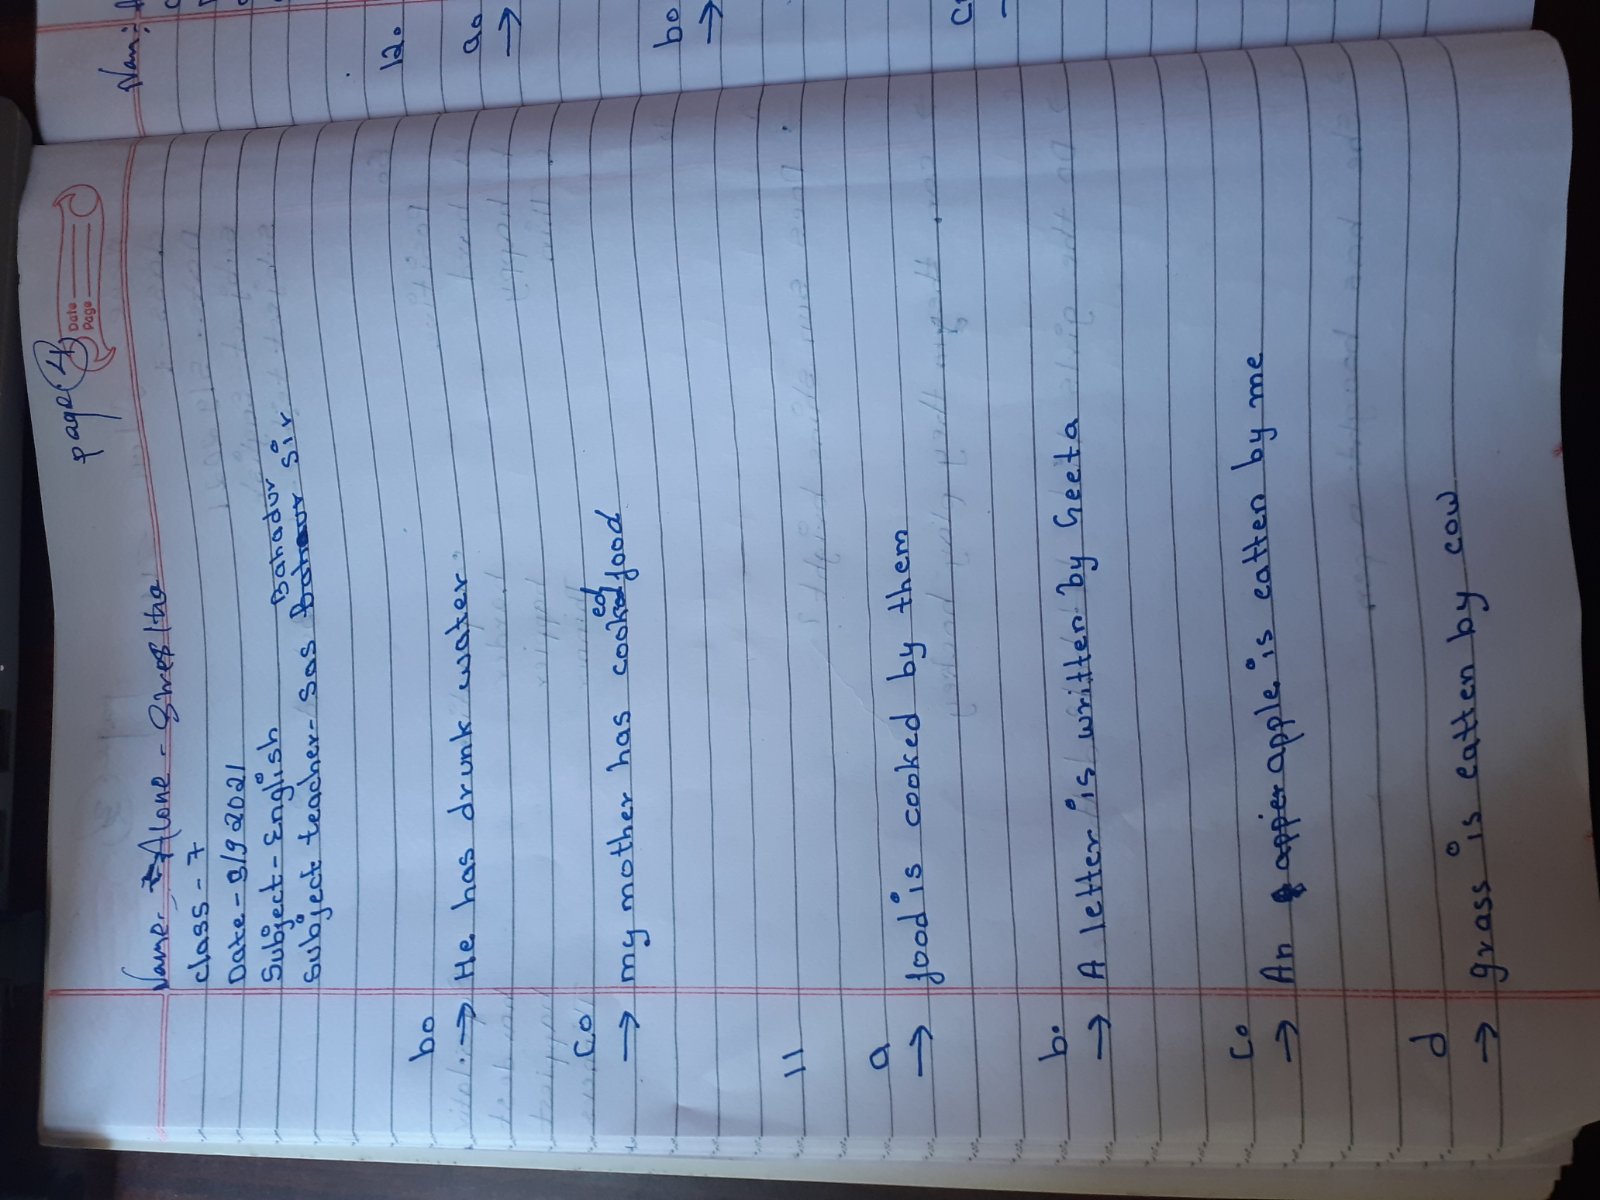 page. 4
Date
Page
Name - Alone - Shrestha
class - 7
Date - 3/9 2021
Subject - English
Bahadur
Subject teacher - Sas sir
b.
→ He has drunk water.
c.
→ my mother has cooked food
11
a
→ food is cooked by them
b.
→ A letter is written by Geeta
c.
→ An apple is eatten by me
d
→ grass is eatten by cow
Nam
12.
a.
→
b.
→
c